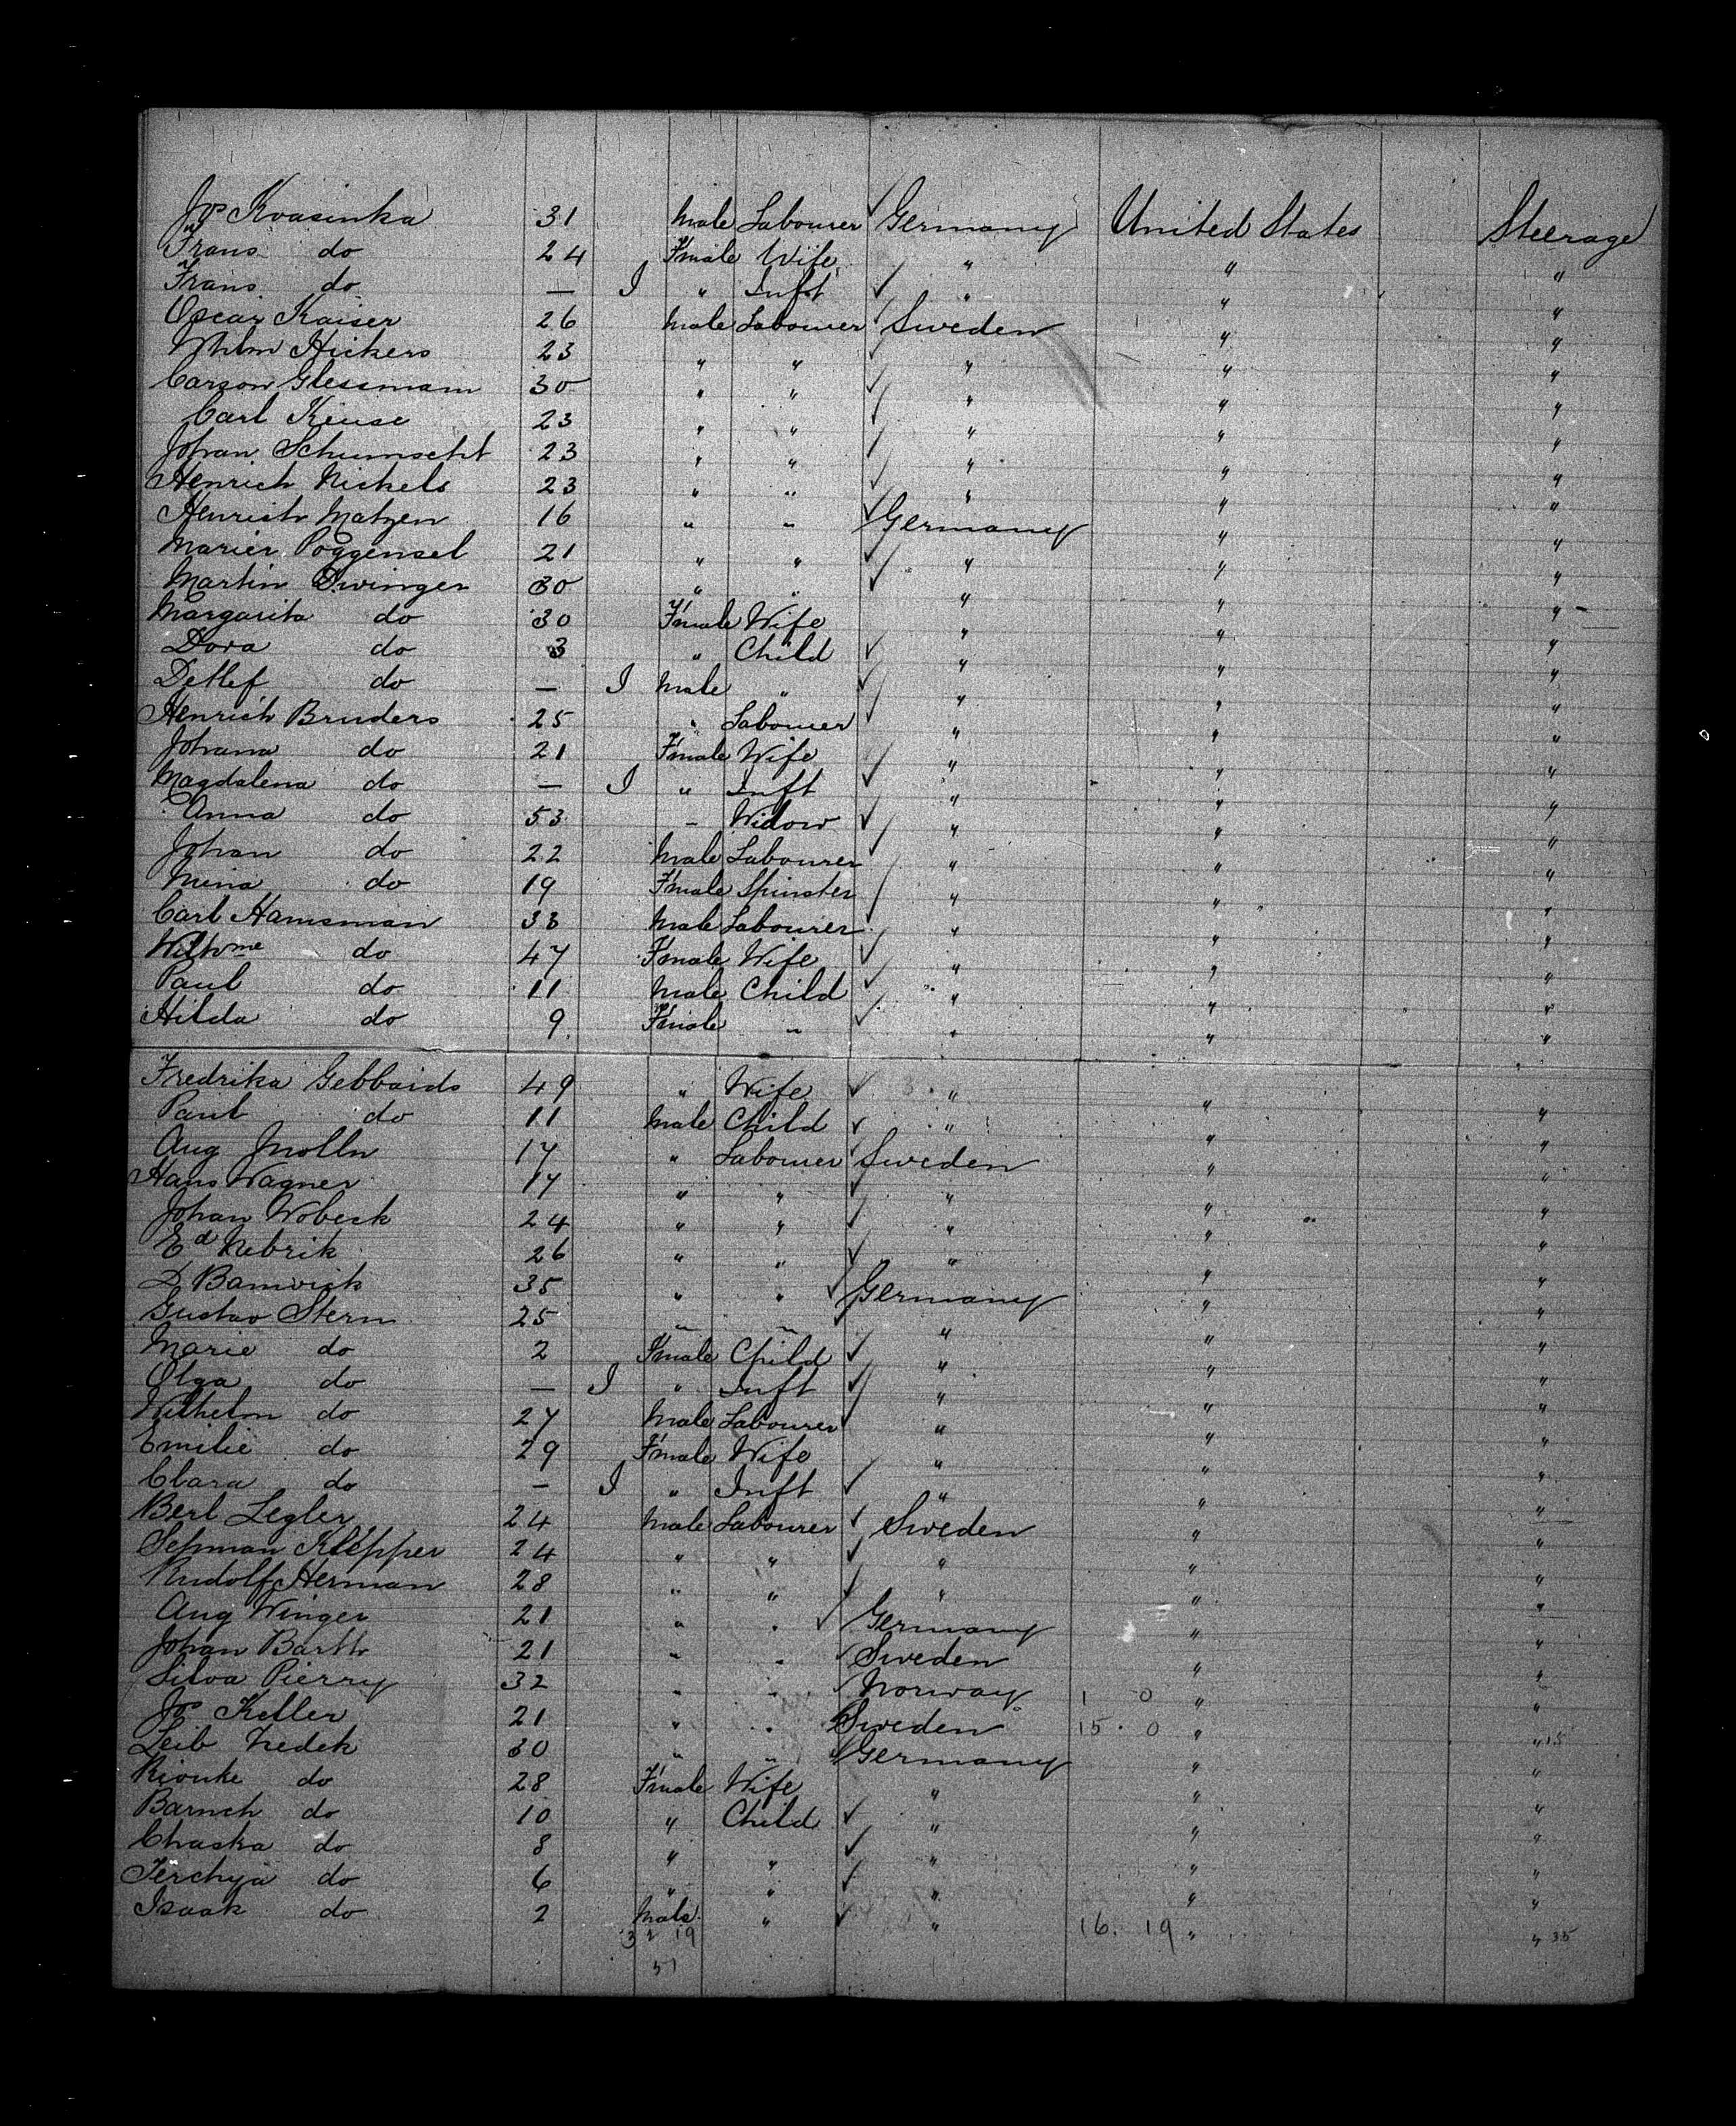 Jos Kvasinka 31 Male Labourer Germany United States Steerage
Frans do 24 F'male Wife " " "
Frans do — I " Inft " " "
Oscar Kaiser 26 Male Labourer Sweden " "
Whlm Hickers 23 " " " " "
Carson Glessmann 30 " " " " "
Carl Keuse 23 " " " " "
Johan Schumscht 23 " " " " "
Henrich Nickels 23 " " " " "
Henrich Matzen 16 " " Germany " "
Marier Poggensel 21 " " " " "
Martin Dwinger 30 " " " " "
Margarita do 30 F'male Wife " " "
Dora do 3 " Child " " "
Detlef do — I Male " " " "
Henrich Bruders 25 " Labourer " " "
Johana do 21 F'male Wife " " "
Magdalena do — I " Inft " " "
Anna do 53 " Widow " " "
Johan do 22 Male Labourer " " "
Mina do 19 F'male Spinster " " "
Carl Hamsman 33 Male Labourer " " "
Wilhme do 47 F'male Wife " " "
Paul do 11 Male Child " " "
Hilda do 9 F'male " " " "
Fredrika Gebbaids 49 " Wife " " "
Paul do 11 Male Child " " "
Aug 17 " Labourer Sweden " "
Hans Wagner 17 " " " " "
Johan Wobeck 24 " " " " "
Ed Nebrik 26 " " " " "
D Bamwick 35 " " Germany " "
Gustav Stern 25 " " " " "
Marie do 2 F'male Child " " "
Olga do — I " Inft " " "
Wilhelm do 27 Male Labourer " " "
Emilie do 29 F'male Wife " " "
Clara do — I " Inft " " "
Berl Legler 24 Male Labourer Sweden " "
Sehman Klepper 24 " " " " "
Rudolf Herman 28 " " " " "
Aug Winger 21 " " Germany " "
Johan Barth 21 " " Sweden " "
Silva Pierry 32 " " Norway 1 0 " "
Jos Keller 21 " " Sweden 15. 0 " " 15
Leib Zedek 30 " " Germany " "
Rionke do 28 F'male Wife " " "
Barnch do 10 " Child " " "
Chaska do 8 " " " " "
Terchya do 6 " " " " "
Isaak do 2 Male " " 16. 19 " " 35
32 19
51